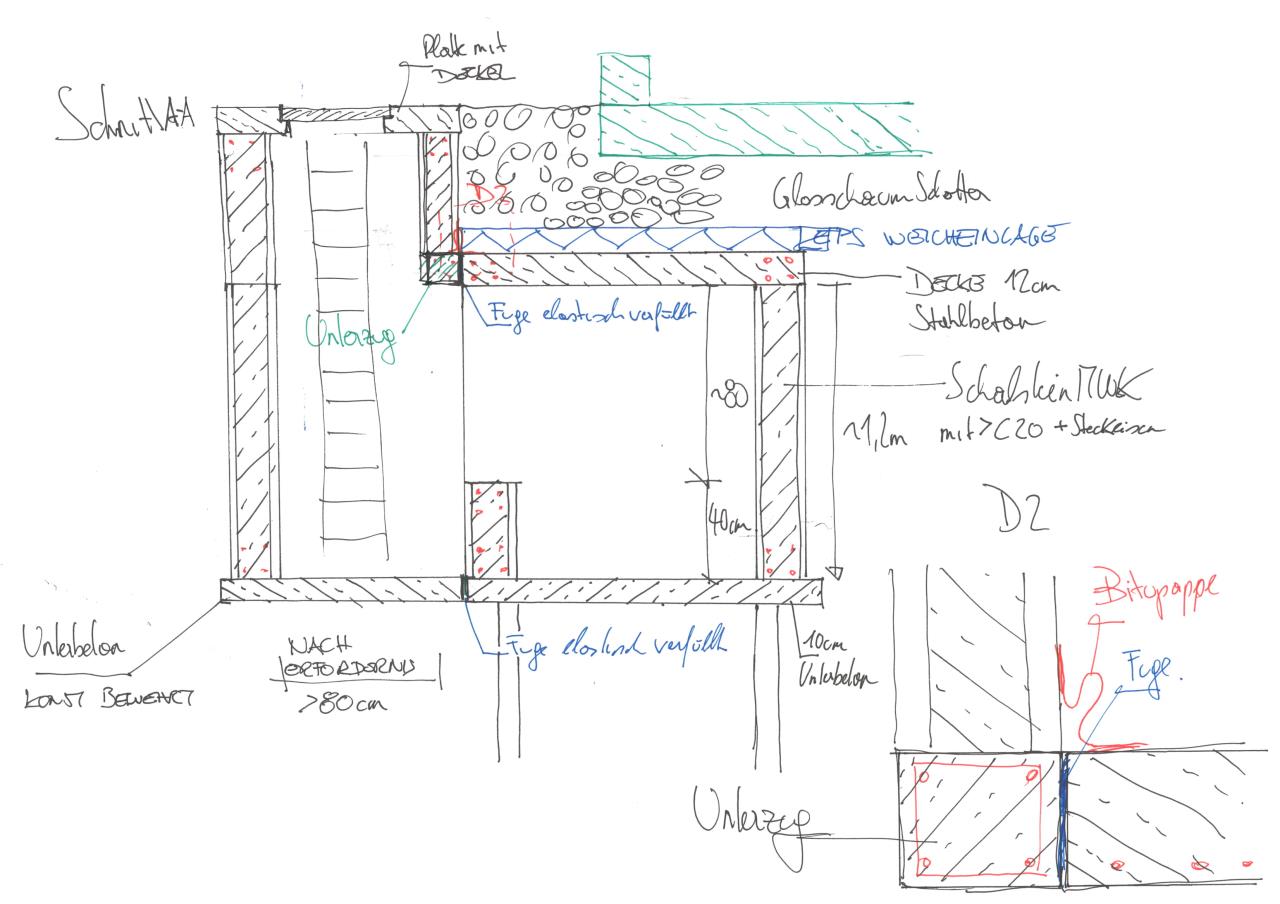 Platte mit
DECKEL
Schnitt AA
D2
Glasschaum Schotter
EPS WEICHEINLAGE
DECKE 12cm
Stahlbeton
Fuge elastisch verfüllt
Unterzug
~80
Schalstein MWK
mit >C20 + Steckeisen
~1,2m
40cm
D2
Bitupappe
Fuge.
Unterbeton
KONST BEWEHRT
NACH
ERFORDERNIS
>80cm
Fuge elastisch verfüllt
10cm
Unterbeton
Unterzug